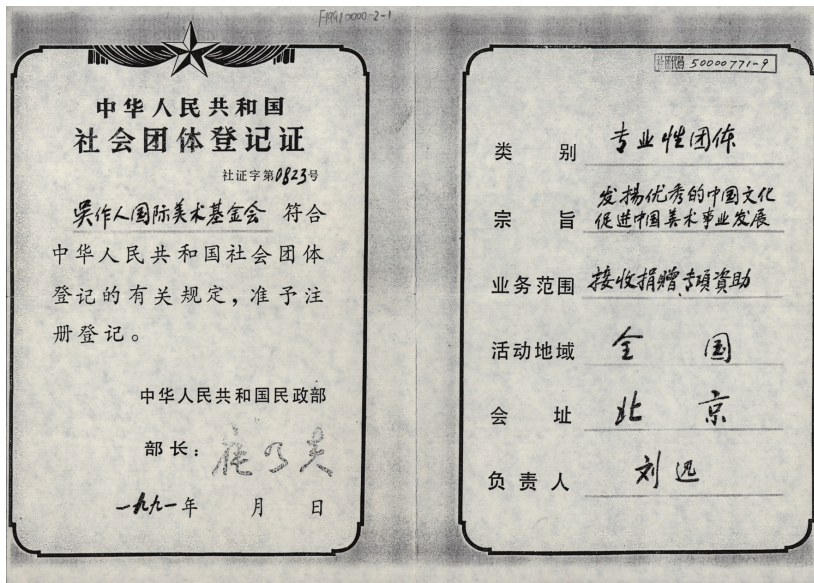 F19910000-2-1
中华人民共和国
社会团体登记证
社证字第0823号
吴作人国际美术基金会 符合
中华人民共和国社会团体
登记的有关规定，准予注
册登记。
中华人民共和国民政部
部长：
一九九一年 月 日
50000771-9
类 别 专业性团体
宗 旨 发揚优秀的中国文化
促进中国美术事业发展
业务范围 接收捐贈、专項資助
活动地域 全 国
会 址 北 京
负责人 刘迅